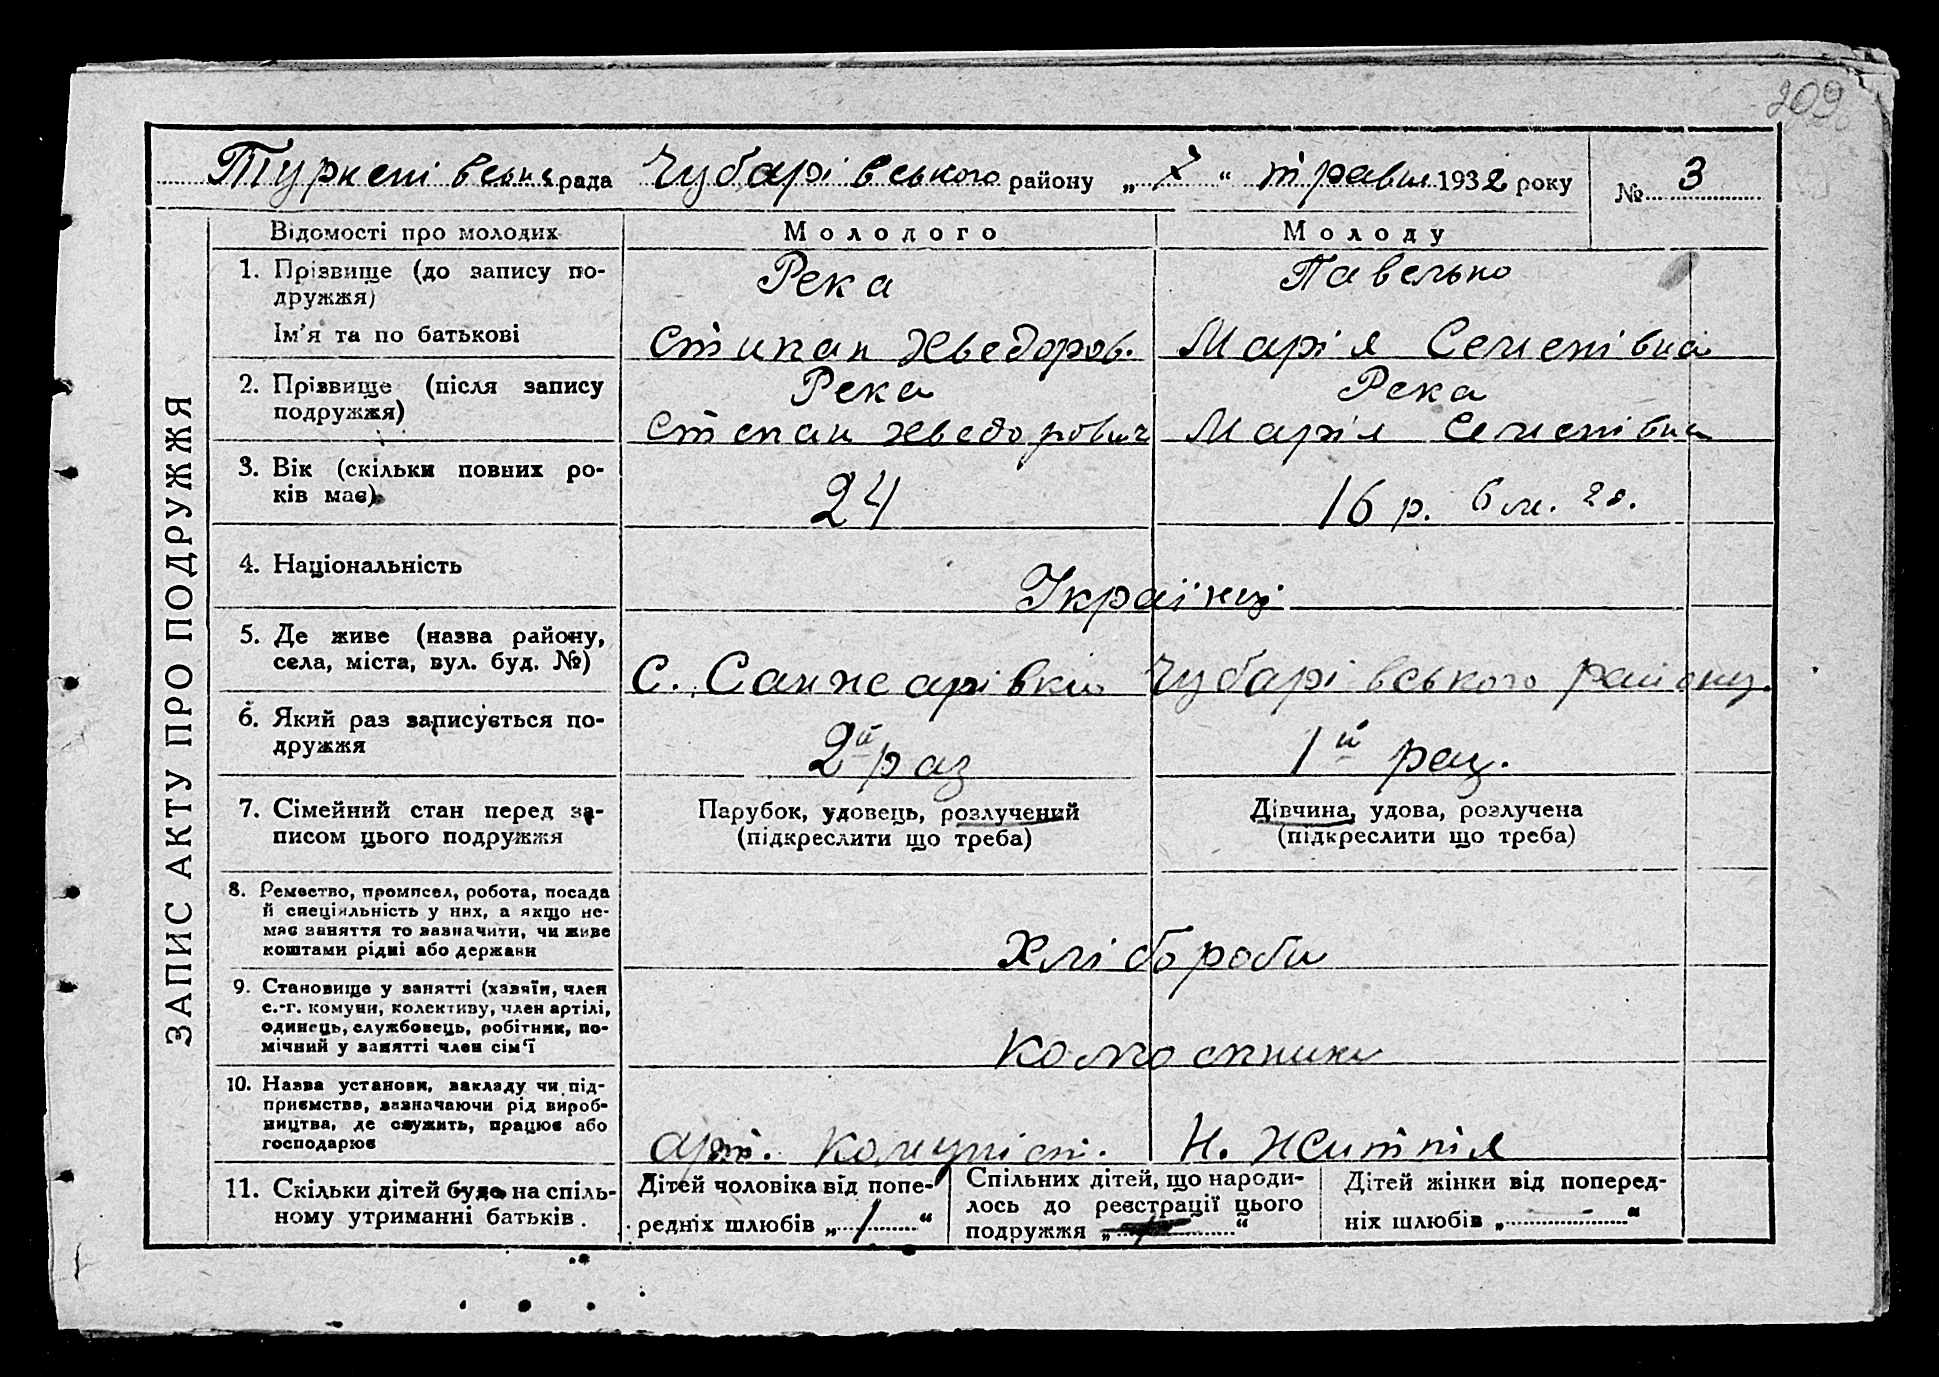 209
Туркенівська рада Чубарівського району „ 7 “ травня 1932 року № 3
ЗАПИС АКТУ ПРО ПОДРУЖЖЯ
Відомості про молодих
Молодого
Молоду
1. Прізвище (до запису по-
дружжя)
Река
Павелько
Ім’я та по батькові
Стипан Хведоров.
Марія Семенівна
2. Прізвище (після запису
подружжя)
Река
Степан Хведорович
Река
Марія Семенівна
3. Вік (скільки повних ро-
ків має)
24
16 р. 6 м. 2 д.
4. Національність
Українці
5. Де живе (назва району,
села, міста, вул. буд. №)
С. Санжарівки Чубарівського району.
6. Який раз записується по-
дружжя
2й раз
1й раз.
7. Сімейний стан перед за-
писом цього подружжя
Парубок, удовець, розлучений
(підкреслити що треба)
Дівчина, удова, розлучена
(підкреслити що треба)
8. Ремество, промисел, робота, посада
й спеціяльність у них, а якщо не-
має заняття то зазначити, чи живе
коштами рідні або держави
Хлібороби
9. Становище у занятті (хазяїн, член
с.-г. комуни, колективу, член артілі,
одинець, службовець, робітник, по-
мічний у занятті член сім'ї
10. Назва установи, закладу чи під-
приємства, зазначаючи рід вироб-
ництва, де служить, працює або
господарює
арт. Комуніст.
Н. Життя
11. Скільки дітей буде на спіль-
ному утриманні батьків.
Дітей чоловіка від попе-
редніх шлюбів „ 1 “
Спільних дітей, що народи-
лось до реєстрації цього
подружжя „ “
Дітей жінки від поперед-
ніх шлюбів „ — “